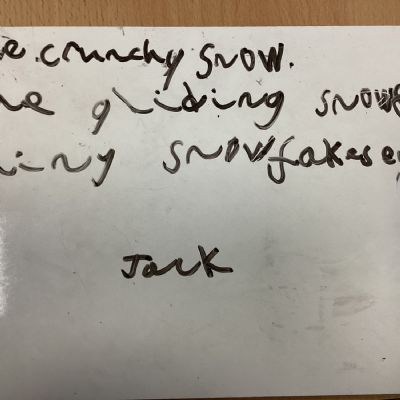 e crunchy snow.
he gliding snow
iny snowfakes
Jack